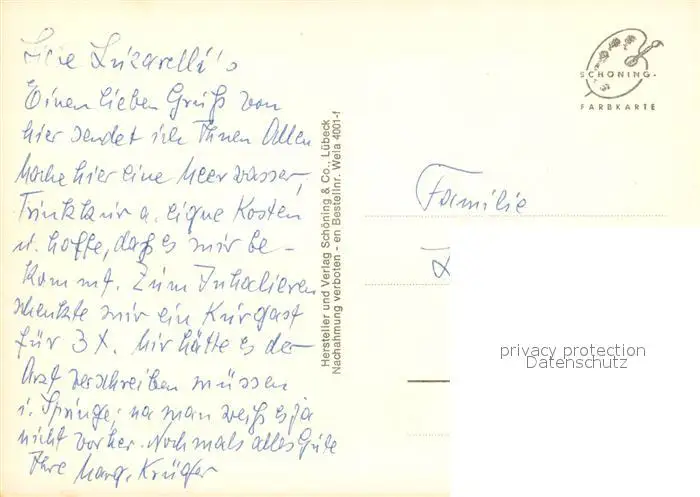 Liebe Luzarelli's
Einen lieben Gruß von
hier sendet ich Ihnen Allen
Mache hier eine Meerwasser,
Trinkkur a. eigne Kosten
u. hoffe, daß es mir be-
kommt. Zum Inhalieren
schenkte mir ein Kurgast
für 3 x. Mir hätte es der
Arzt verschreiben müssen
i. Springe; na man weiß es ja
nicht vorher. Nochmals alles Gute
Ihre Marg. Krüger
Hersteller und Verlag Schöning & Co., Lübeck
Nachahmung verboten - en Bestellnr. Wela 4001-f
SCHÖNING-
FARBKARTE
Familie
privacy protection
Datenschutz